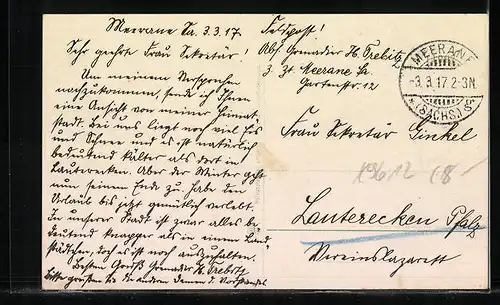 Meerane Sa. 3.3.17
Sehr geehrte Frau Sekretär!
Um meinem Versprechen
nachzukommen, sende ich Ihnen
eine Ansicht von meiner Heimat-
stadt. Bei uns liegt noch viel Eis
und Schnee und es ist natürlich
bedeutend kälter als dort in
Lauterecken. Aber der Winter geht
nun seinem Ende zu. Habe den
Urlaub bis jetzt gemütlich verlebt.
In unserer Stadt ist zwar alles be-
deutend knapper als in einem Land
städtchen, doch es ist noch auszuhalten.
Besten Gruß Grenadier H. Trebitz
Bitte grüßen Sie die andren Damen d. Vorstandes
Feldpost!
Abs. Grenadier H. Trebitz
z. Zt. Meerane Sa.
Gartenstr. 12
MEERANE
-3.3.17.2-3N.
*(SACHS.)
Frau Sekretär Ginkel
Lauterecken Pfalz
Vereinslazarett